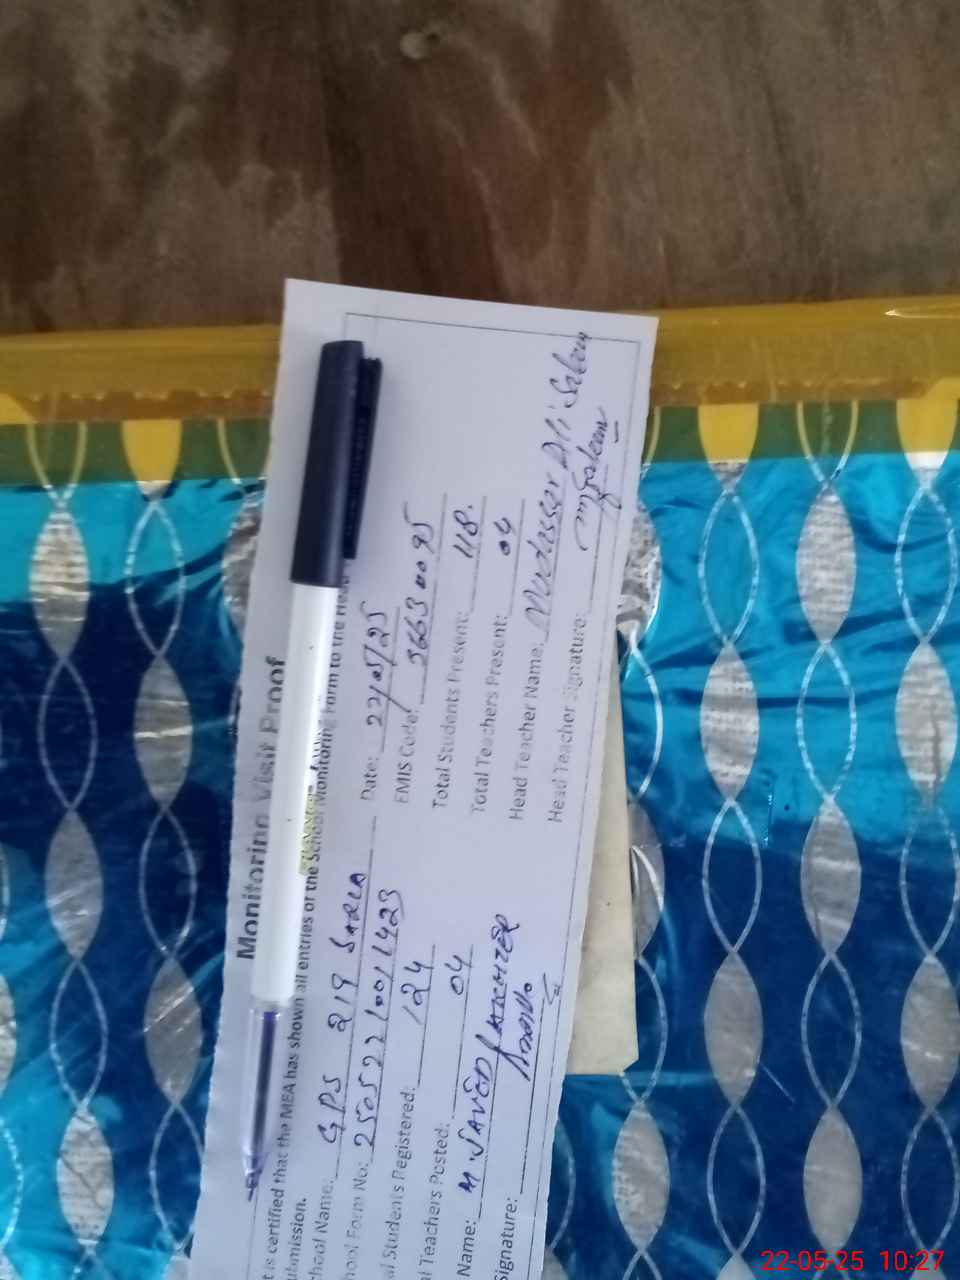 Monitoring Visit Proof
t is certified that the MEA has shown all entries of the School Monitoring Form to the Head
ubmission.
chool Name: GPS 219 SARLA Date: 22/05/25
hool Form No: 25052210011423 EMIS Code:
al Students Registered: 124 Total Students Present: 118.
al Teachers Posted: 04 Total Teachers Present: 04
Name: M JAVED Head Teacher Name: Mudassar Ali Saleem
Signature: Head Teacher Signature: Saleem
22-05-25 10:27